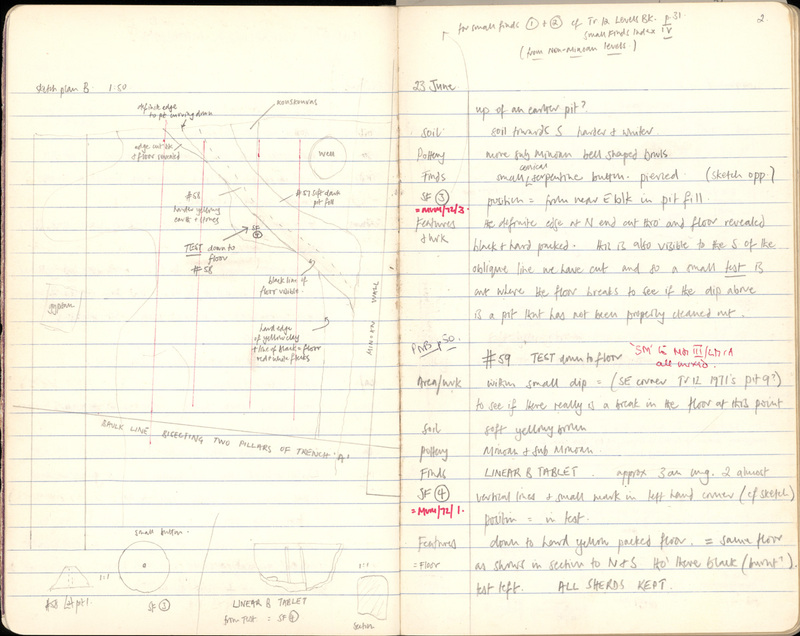 Sketch plan B 1:50
definite edge
to pit moving down
KONSTOURAS
edge cut thro
+ floor revealed
Well
#58
harder yellowy
earth + stones
#57 soft dark
pit fill
SF
④
TEST down to
floor
#58
black line of
floor visible
gypsum
hard edge
of yellow clay
+ line of black = floor
red + when flecks
MINOAN WALL
BAULK LINE BISECTING TWO PILLARS OF TRENCH 'A'
small button.
1:1
1:1
SF ③
LINEAR B TABLET
from Test = SF ④
section
for small finds ① + ② cf Tr 12 Levels Bk. p.31.
Small Finds index IV
(from Non-Minoan levels)
2
23 June.
up of an earlier pit?
Soil soil towards S harder + whiter.
Pottery more sub Minoan bell shaped bowls
Finds small conical serpentine button. pierced. (sketch opp.)
SF ③ position = from near E blk in pit fill.
= MUM/72/3.
Features the definite edge at N end cut thro' and floor revealed
+ wrk black + hard packed. this is also visible to the S of the
oblique line we have cut and so a small test is
cut where the floor breaks to see if the dip above
is a pit that has not been properly cleaned out.
PMB p 50.
#59 TEST down to floor 'SM' & MM III/LM IA
all mixed.
Area/wrk within small dip = (SE corner Tr 12 1971's pit 9?)
to see if there really is a break in the floor at this point
Soil soft yellowy brown
Pottery Minoan + Sub Minoan.
Finds LINEAR B TABLET. approx 3 cm lng. 2 almost
SF ④ vertical lines + small mark in left hand corner (cf sketch)
= MUM/72/1. position = in test.
Features down to hard yellow packed floor. = same floor
= Floor as shows in section to N + S tho' there black (burnt?)
test left. ALL SHERDS KEPT.